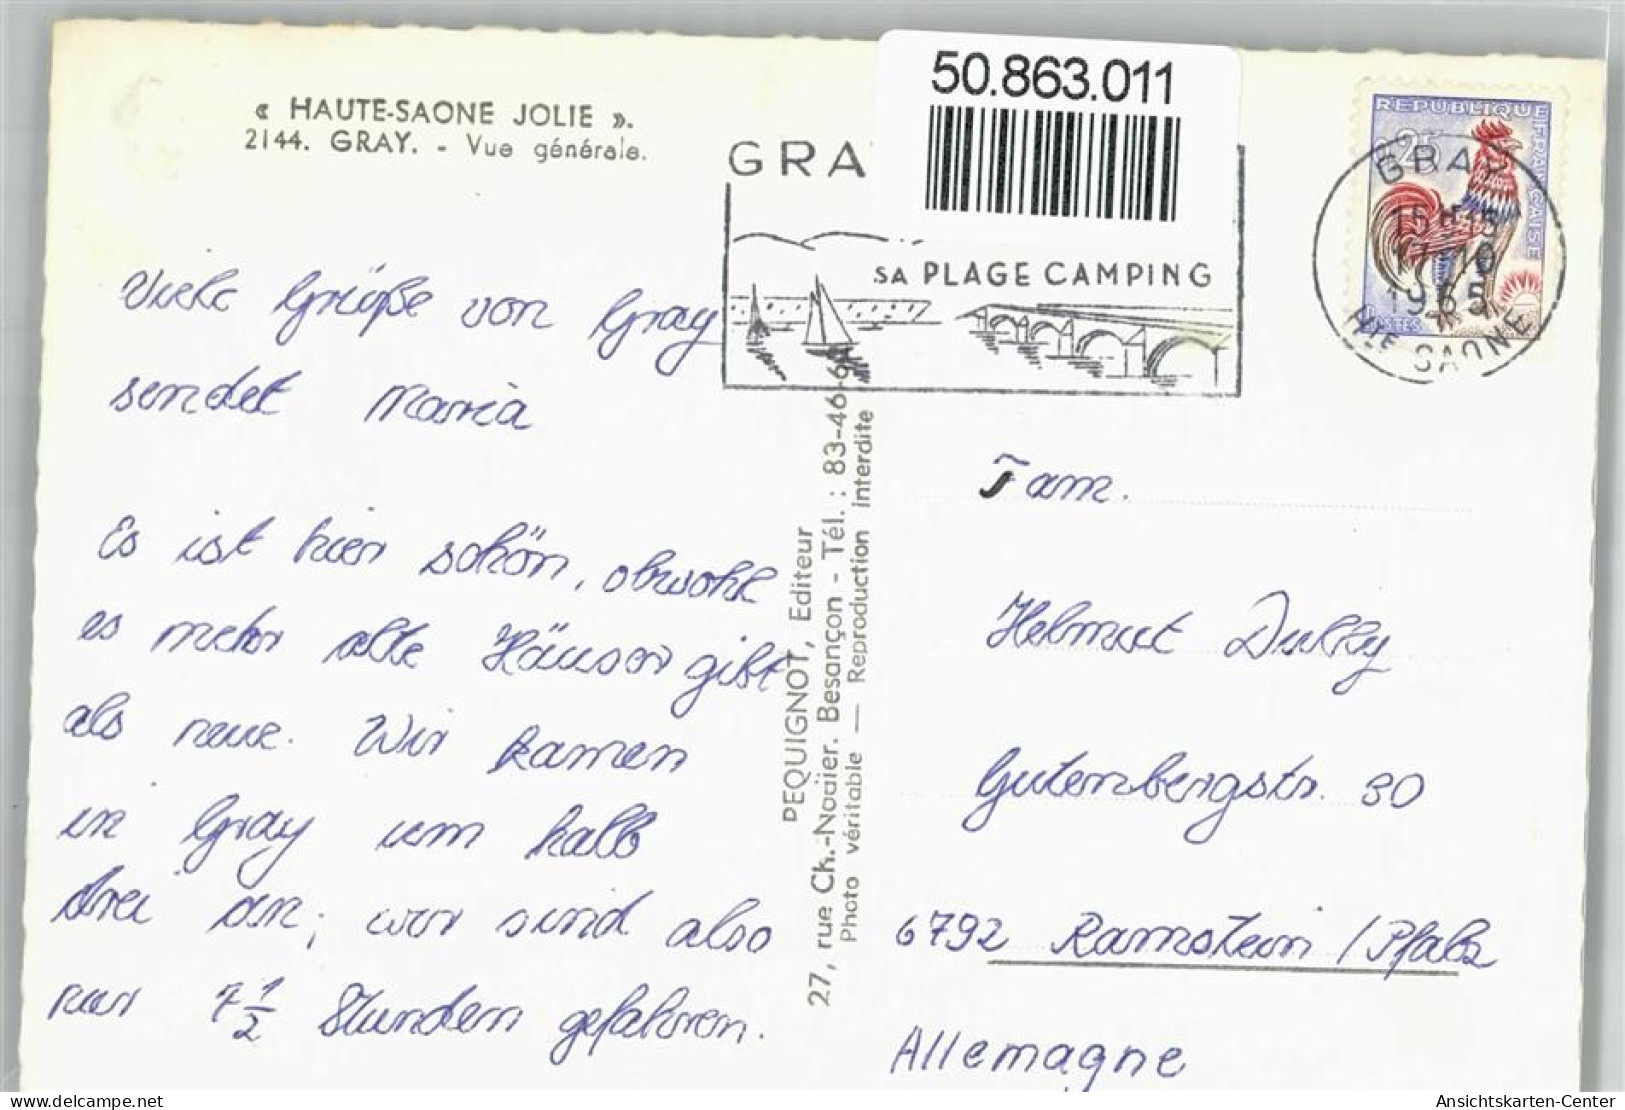 « HAUTE-SAONE JOLIE ».
2144. GRAY. - Vue générale.
Viele Grüße von Gray
sendet Maria
Es ist hier schön, obwohl
es mehr alte Häuser gibt
als neue. Wir kamen
in Gray um halb
drei an; wir sind also
nur 7 1/2 Stunden gefahren.
PEQUIGNOT, Editeur
27, rue Ch.-Nodier. Besançon - Tél. : 83-46-
Photo véritable — Reproduction interdite
50.863.011
GRA
SA PLAGE CAMPING
REPUBLIQUE FRANÇAISE
0,25
POSTES
GRAY
15H15
10
1965
HTE SAONE
Fam.
Helmut
Gutenbergstr. 30
6792 Ramstein / Pfalz
Allemagne
www.delcampe.net
Ansichtskarten-Center